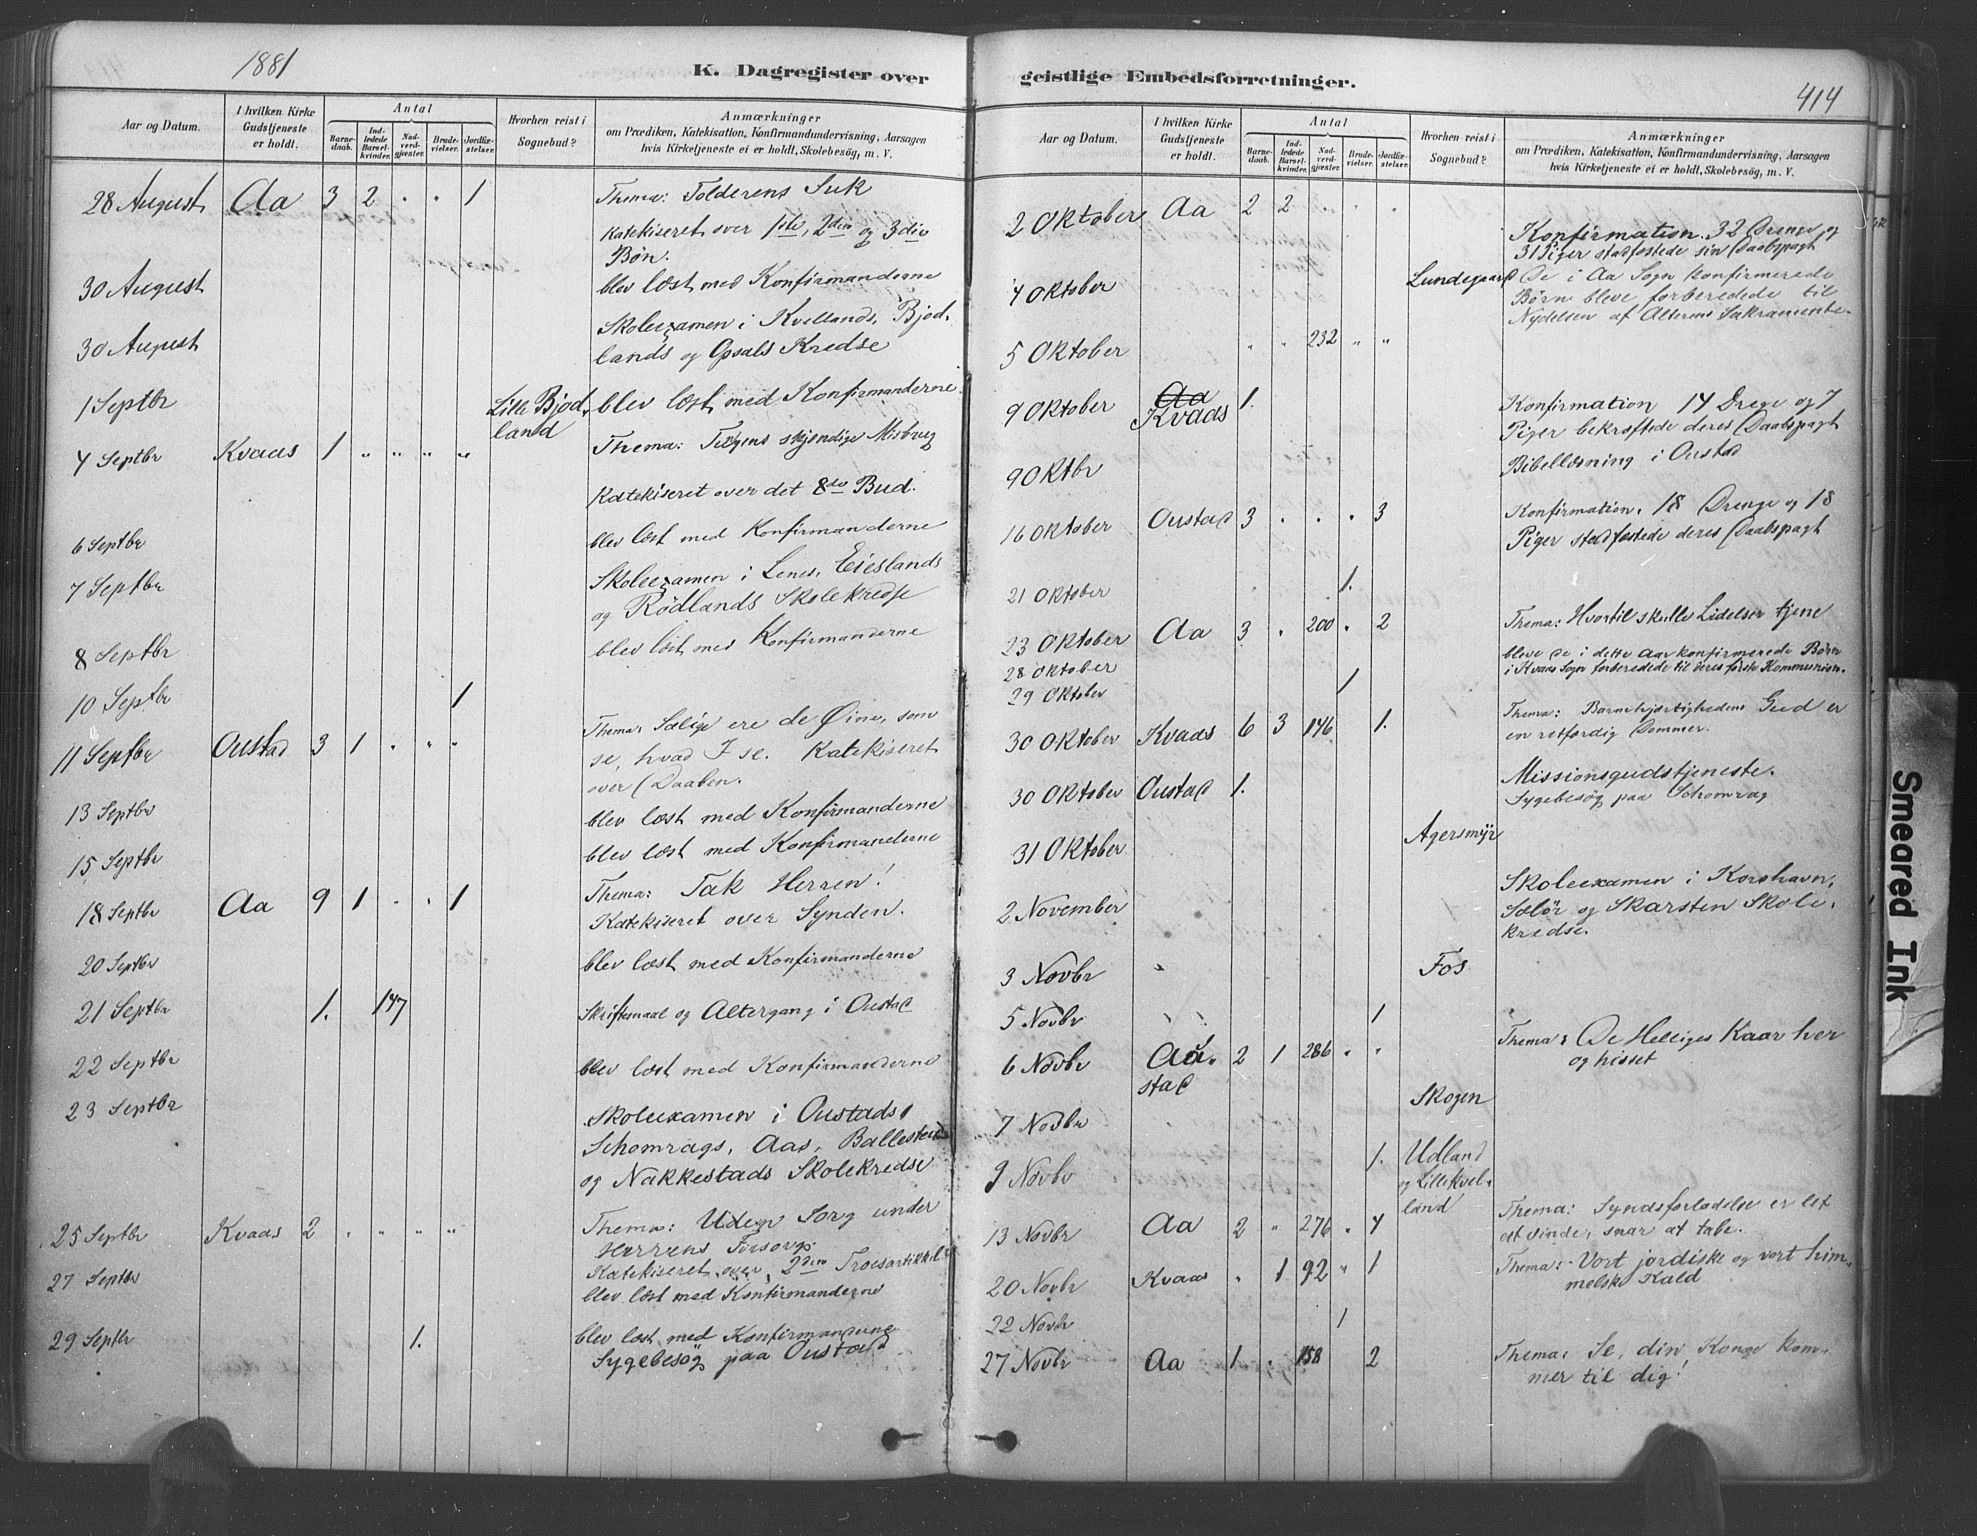 1881
K. Dagregister over
Aar og Datum.
I hvilken Kirke Gudstjeneste er holdt.
Antal
Barnedaab.
Indledede Barselkvinder.
Nadverdgjæster.
Brudevielser.
Jordfæstelser.
Hvorhen reist i Sognebud?
Anmærkninger
om Prædiken, Katekisation, Konfirmandundervisning, Aarsagen
hvis Kirketjeneste ei er holdt, Skolebesøg, m. V.
28 August Aa 3 2 " " 1 Thema: Tolderens Suk
Katekiseret over 1ste, 2den og 3die
Bøn.
30 August blev læst med Konfirmanderne
30 August Skoleexamen i Kvellands, Bjod-
lands og Opsals Kredse
1 Septbr Lille Bjod- blev læst med Konfirmanderne
land
4 Septbr Kvaas 1 " " " " Thema: Tungens skjendige Misbrug
Katekiseret over det 8de Bud.
6 Septbr blev læst med Konfirmanderne
7 Septbr Skoleexamen i Lenes, Eieslands
og Rødlands Skolekredse
8 Septbr blev læst med Konfirmanderne
10 Septbr 1
11 Septbr Oustad 3 1 " " " Thema: Salige ere de Øine, som
se, hvad I se. Katekiseret
over Daaben.
13 Septbr blev læst med Konfirmanderne
15 Septbr blev læst med Konfirmanderne
18 Septbr Aa 9 1 " " 1 Thema: Tak Herren!
Katekiseret over Synden.
20 Septbr blev læst med Konfirmanderne
21 Septbr 1. 147 Skriftemaal og Altergang i Oustad
22 Septbr blev læst med Konfirmanderne
23 Septbr Skoleexamen i Oustads,
Schomrags, Aas, Ballestads
og Nakkestads Skolekredse
25 Septbr Kvaas 2 " " " " Thema: Uden Sorg under
Herrens Forsorg.
Katekiseret over 2den Troesartikkel
27 Septbr blev læst med Konfirmanderne
29 Septbr 1. blev læst med Konfirmanderne
Sygebesøg paa Oustad
geistlige Embedsforretninger.
414
Aar og Datum.
I hvilken Kirke Gudstjeneste er holdt.
Antal
Barnedaab.
Indledede Barselkvinder.
Nadverdgjæster.
Brudevielser.
Jordfæstelser.
Hvorhen reist i Sognebud?
Anmærkninger
om Prædiken, Katekisation, Konfirmandundervisning, Aarsagen
hvis Kirketjeneste ei er holdt, Skolebesøg, m. V.
2 Oktober Aa 2 2 " " " Konfirmation. 32 Drenge og
31 Piger stadfæstede sin Daabspagt
4 Oktober Lundegaard De i Aa Sogn konfirmerede
Børn bleve forberedede til
Nydelsen af Alterens Sakramente.
5 Oktober " " 232 " "
9 Oktober Aa Kvaas 1. Konfirmation 14 Drenge og 7
Piger bekræftede deres Daabspagt
9 Oktbr Bibellæsning i Oustad
16 Oktober Oustad 3 " " " 3 Konfirmation. 18 Drenge og 18
Piger stadfæstede deres Daabspagt
21 Oktober 1.
23 Oktober Aa 3 " 200 " 2 Thema: Hvortil skulle Lidelser tjene
28 Oktober bleve de i dette Aar konfirmerede Børn
i Kvaas Sogn forberedede til deres første Kommunion.
29 Oktober 1
30 Oktober Kvaas 6 3 146 1. Thema: Barmhjertighedens Gud er
en retfærdig Dommer.
30 Oktober Oustad 1. Missionsgudstjeneste.
Sygebesøg paa Schomrag
31 Oktober Agersmyr
2 November Skoleexamen i Korshavn,
Sælør og Skarsten Skole-
kredse.
3 Novbr Fos
5 Novbr 1
6 Novbr Au- 2 1 286 " " Thema: De Helliges Kaar her
stad og hisset
7 Novbr Skogen
9 Novbr 1. Udland
og Lillekvel-
land
13 Novbr Aa 2 " 276 " 4 Thema: Syndsforladelse er let
at vinde, svar at tabe.
20 Novbr Kvaas " 1 92 " 1 Thema: Vort jordiske og vort him-
melske Kald
22 Novbr 1
27 Novbr Aa 1 " 158 2 Thema: Se, din Konge kom-
mer til dig!
Smeared Ink